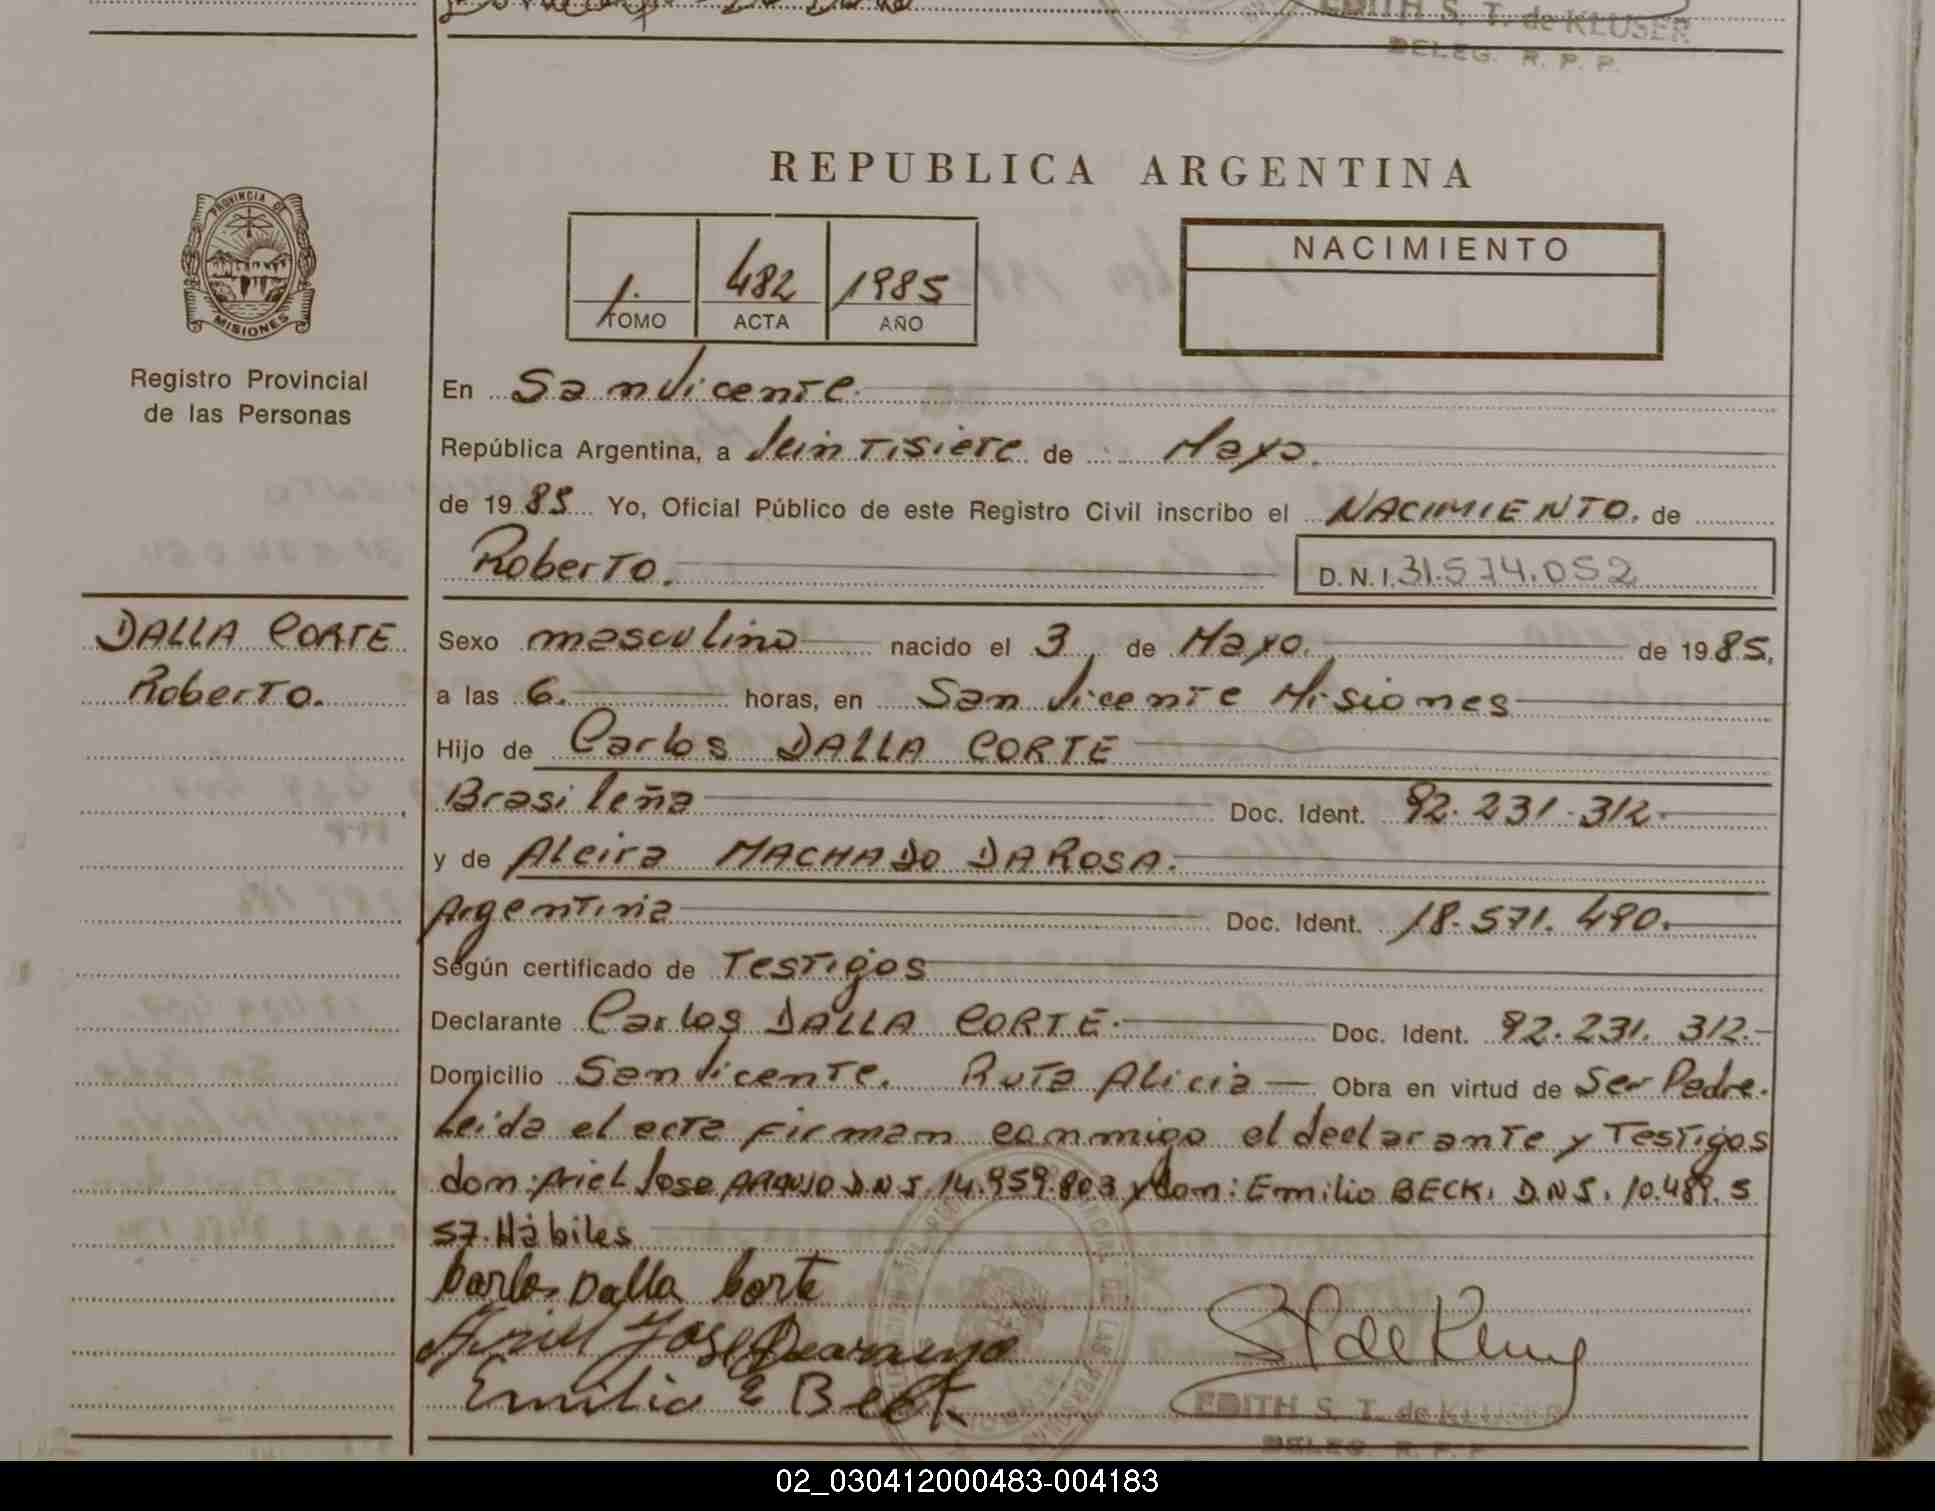 EDITH S. T. de KLUSER
DELEG. R. P. P.
REPUBLICA ARGENTINA
PROVINCIA DE
MISIONES
Registro Provincial
de las Personas
1. 482 1985
TOMO ACTA AÑO
NACIMIENTO
En San Vicente.
República Argentina, a Veintisiete de Mayo.
de 1985 Yo, Oficial Público de este Registro Civil inscribo el NACIMIENTO. de
Roberto. D.N.I. 31.574.052
DALLA CORTE
Roberto.
Sexo masculino nacido el 3 de Mayo. de 1985,
a las 6. horas, en San Vicente Misiones
Hijo de Carlos DALLA CORTE
Brasileña Doc. Ident. 92.231.312.
y de Alcira MACHADO DA ROSA.
Argentina Doc. Ident. 18.571.490.
Según certificado de Testigos
Declarante Carlos DALLA CORTE. Doc. Ident. 92.231.312.
Domicilio San Vicente. Ruta Alicia Obra en virtud de Ser Padre.
Leida el acta firman conmigo el declarante y Testigos
don: Ariel Jose ARAUJO D.N.I. 14.959.803 y don: Emilio BECK. D.N.I. 10.489.5
57. Hábiles
Carlos Dalla Corte
Ariel Jose Araujo
Emilio E Beck
EDITH S. T. de KLUSER
DELEG. R. P. P.
02_030412000483-004183